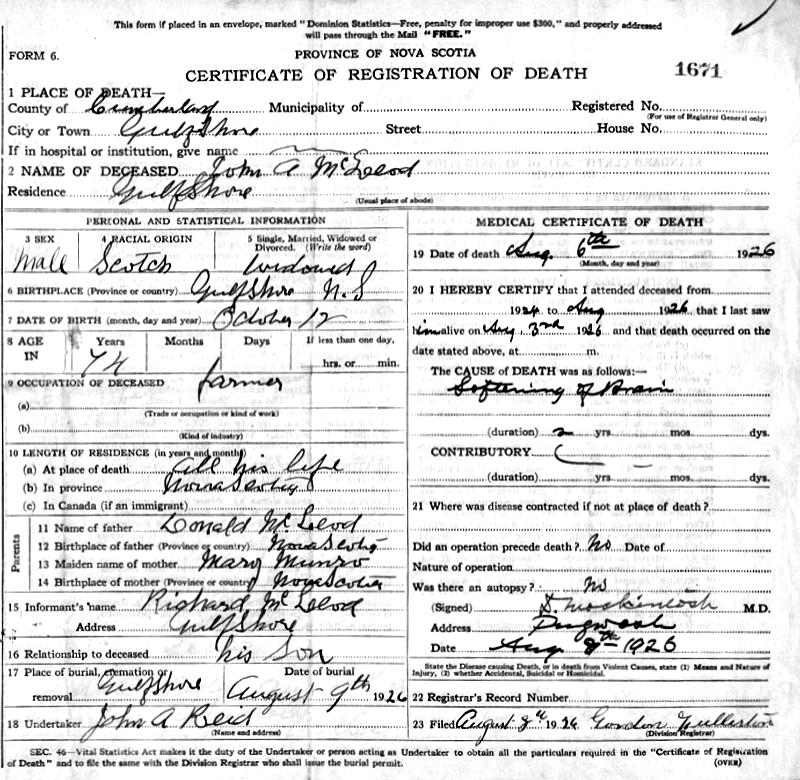 This form if placed in an envelope, marked "Dominion Statistics—Free, penalty for improper use $300," and properly addressed
will pass through the Mail "FREE."
FORM 6.
PROVINCE OF NOVA SCOTIA
CERTIFICATE OF REGISTRATION OF DEATH
1671
1 PLACE OF DEATH—
County of Cumberland Municipality of Registered No.
(For use of Registrar General only)
City or Town Gulf Shore Street House No.
If in hospital or institution, give name
2 NAME OF DECEASED John A McLeod
Residence Gulf Shore
(Usual place of abode)
PERSONAL AND STATISTICAL INFORMATION
3 SEX 4 RACIAL ORIGIN 5 Single, Married, Widowed or Divorced. (Write the word)
Male Scotch Widowed
6 BIRTHPLACE (Province or country) Gulf Shore N.S
7 DATE OF BIRTH (month, day and year) October 12
8 AGE IN Years Months Days If less than one day,
74 hrs. or min.
9 OCCUPATION OF DECEASED farmer
(a)
(Trade or occupation or kind of work)
(b)
(Kind of industry)
10 LENGTH OF RESIDENCE (in years and months)
(a) At place of death all his life
(b) In province Nova Scotia
(c) In Canada (if an immigrant)
Parents
11 Name of father Donald McLeod
12 Birthplace of father (Province or country) Nova Scotia
13 Maiden name of mother Mary Munro
14 Birthplace of mother (Province or country) Nova Scotia
15 Informant's name Richard McLeod
Address Gulf Shore
16 Relationship to deceased his Son
17 Place of burial, cremation or removal Gulf Shore Date of burial August 9th 1926
18 Undertaker John A Reid
(Name and address)
MEDICAL CERTIFICATE OF DEATH
19 Date of death Aug. 6th 1926
(Month, day and year)
20 I HEREBY CERTIFY that I attended deceased from
1924 to Aug 1926 that I last saw
him alive on Aug 3rd 1926 and that death occurred on
date stated above, at m.
The CAUSE of DEATH was as follows:—
Softening of Brain
(duration) 2 yrs. mos. dys.
CONTRIBUTORY
(duration) yrs. mos. dys.
21 Where was disease contracted if not at place of death?
Did an operation precede death? No Date of
Nature of operation
Was there an autopsy? No
(Signed) D. Mackintosh M.D.
Address Pugwash
Date Aug 8th 1926
State the Disease causing Death, or in death from Violent Causes, state (1) Means and Nature of
Injury, (2) whether Accidental, Suicidal or Homicidal.
22 Registrar's Record Number
23 Filed August 9th 1926 Gordon Fullerton
(Division Registrar)
SEC. 46—Vital Statistics Act makes it the duty of the Undertaker or person acting as Undertaker to obtain all the particulars required in the "Certificate of Registration
of Death" and to file the same with the Division Registrar who shall issue the burial permit. (OVER)